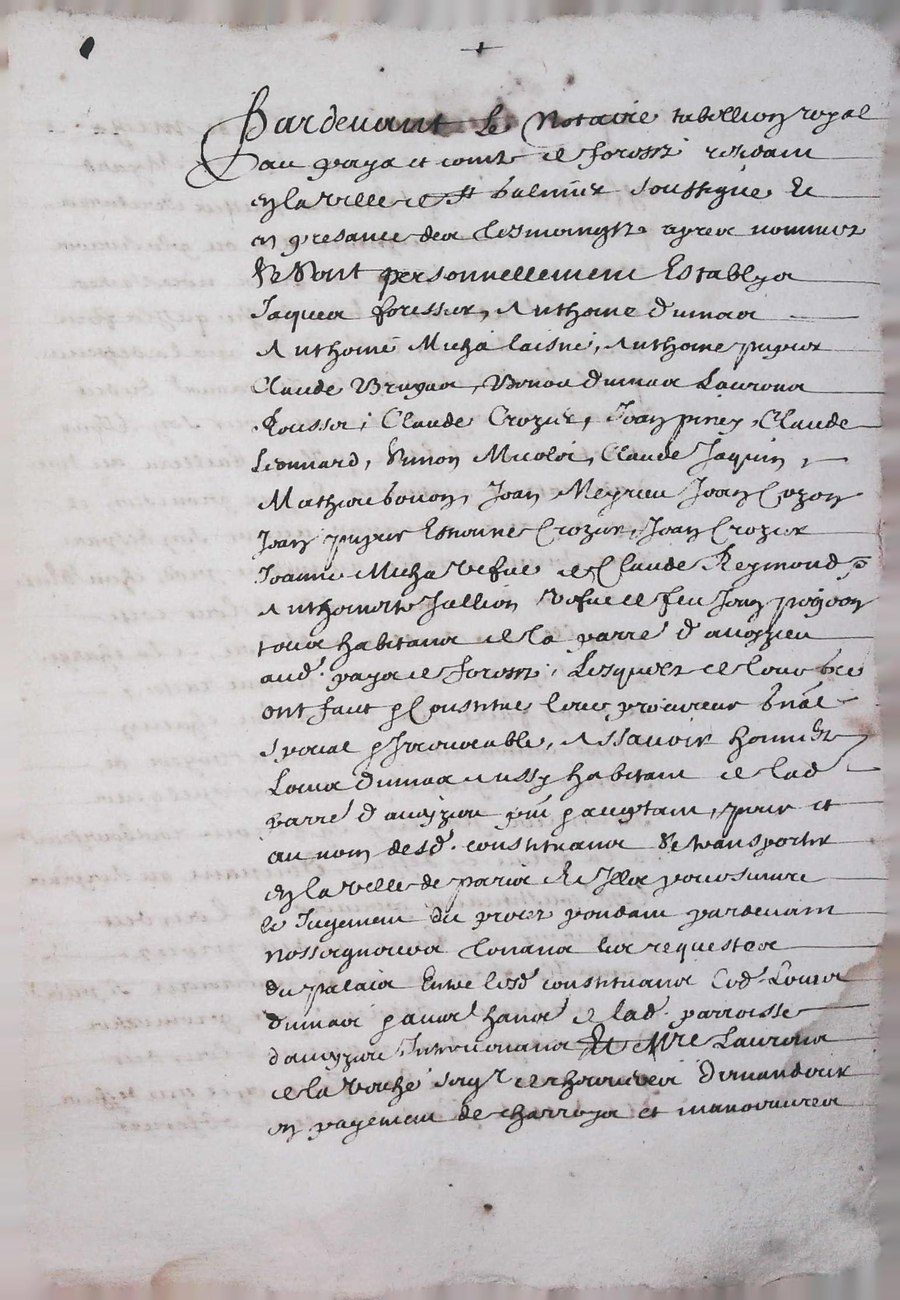 Pardevant Le Notaire tabellion royal
au pays et comté de forestz residant
en la ville de St Galmier soubsigné Et
en presance des tesmoingtz apres nommez
Se Sont personnellement Establys
Jaques foressier, Anthoine dumas
Anthoine Micha laisné, Anthoine
Claude Bruyas, Benoit dumas Laurens
Rousset, Claude Crozier, Jean piney, Claude
Leonnard, Simon Micolet, Claude Jaquin,
Mathieu bonon, Jean Meyrieu Jean Cozon
Jean Estienne Crozier, Jean Crozier
Jeanne Micha vefve de Claude Reymond
Anthoinette Jullien vefve de feu Jean
tous habitans de la parre d'aveyzieu
aud. pays de forestz, Lesquelz de leur gre
ont faict & constitue leur procureur gnal
special & Irrevocable, Assavoir honneste
Louis dumas aussy habitant de lad
parre d'aveyzieu pnt & acceptant, pour et
au nom desd. constituans Se transporter
en la ville de paris Et Illec poursuivre
le Jugement du proces pendant pardevant
nosseigneurs tenans les requestes
du palais Entre lesd constituans led. Louis
dumas & autres hans de lad. parroisse
d'aveyzieu Intervenans Et Mre Laurens
de la veuhe sgr de thourves demandeur
en payement de charroys et manoeuvres